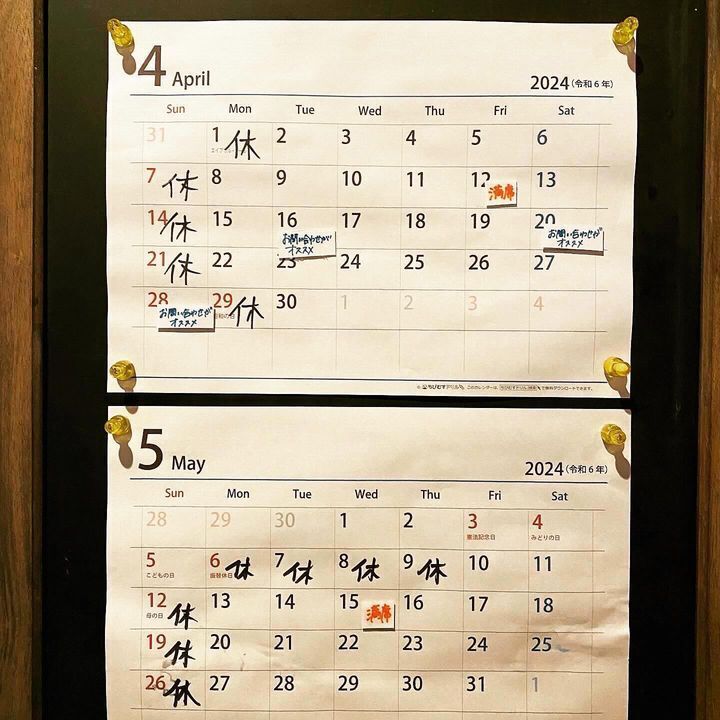 4 April 2024(令和6年)
Sun Mon Tue Wed Thu Fri Sat
31 1 休 2 3 4 5 6
7 休 8 9 10 11 12 満席 13
14 休 15 16 お問い合わせがオススメ 17 18 19 20 お問い合わせがオススメ
21 休 22 23 24 25 26 27
28 お問い合わせがオススメ 29 休 30 1 2 3 4
昭和の日
5 May 2024(令和6年)
Sun Mon Tue Wed Thu Fri Sat
28 29 30 1 2 3 4
憲法記念日 みどりの日
5 6 休 7 休 8 休 9 休 10 11
こどもの日 振替休日
12 休 13 14 15 満席 16 17 18
母の日
19 休 20 21 22 23 24 25
26 休 27 28 29 30 31 1